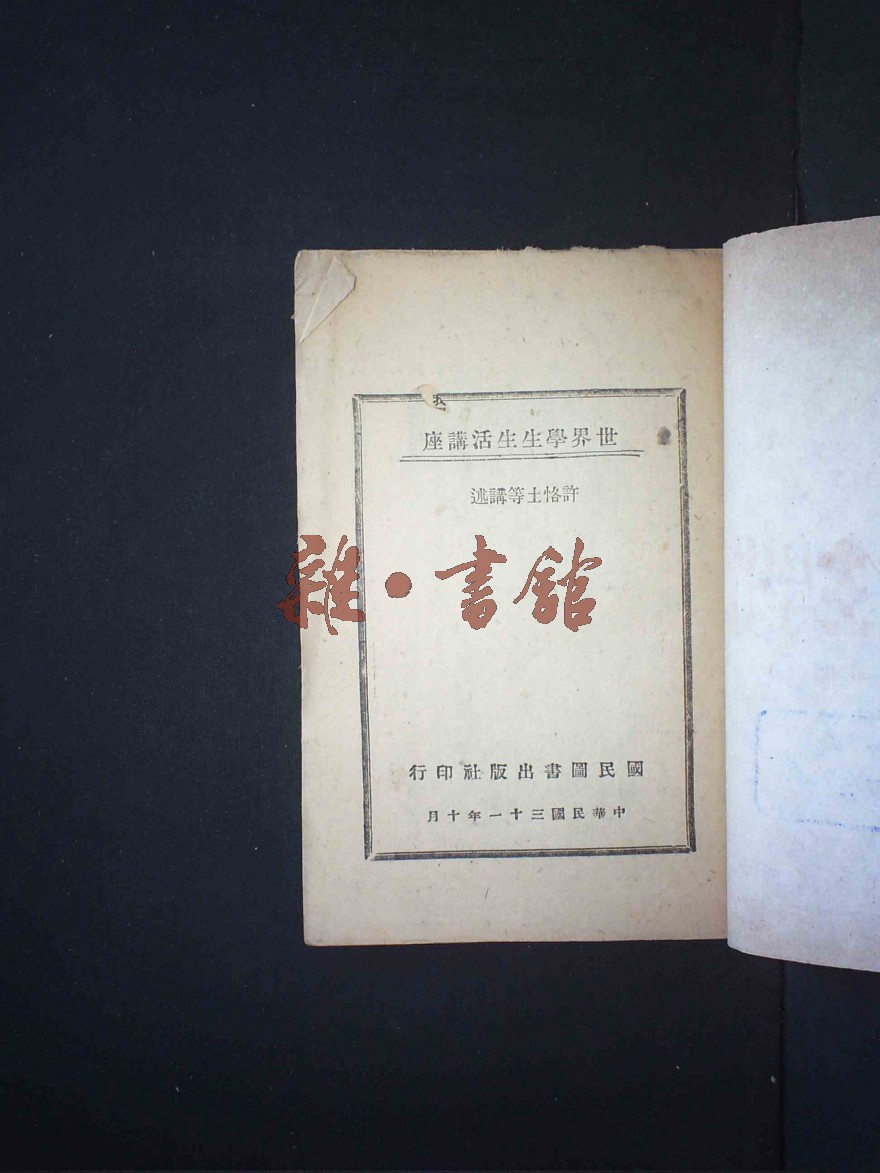 世界學生生活講座
許恪士等講述
雜·書館
國民圖書出版社印行
中華民國三十一年十月